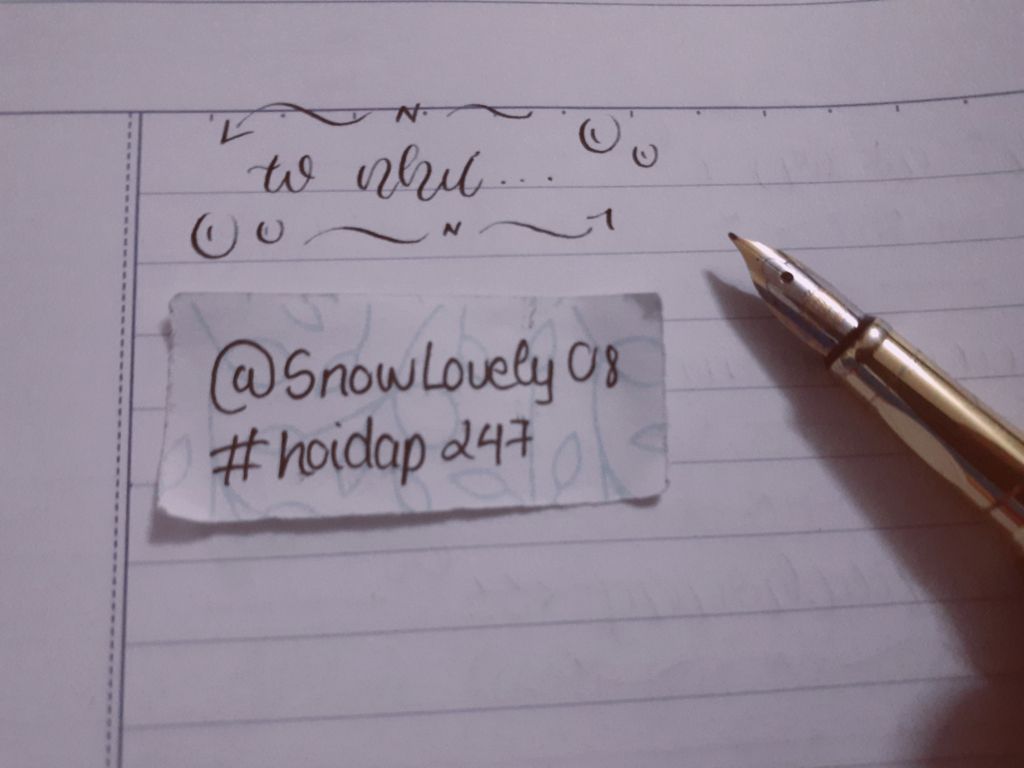 N
to nhu...
N
@SnowLovely08
#hoidap 247